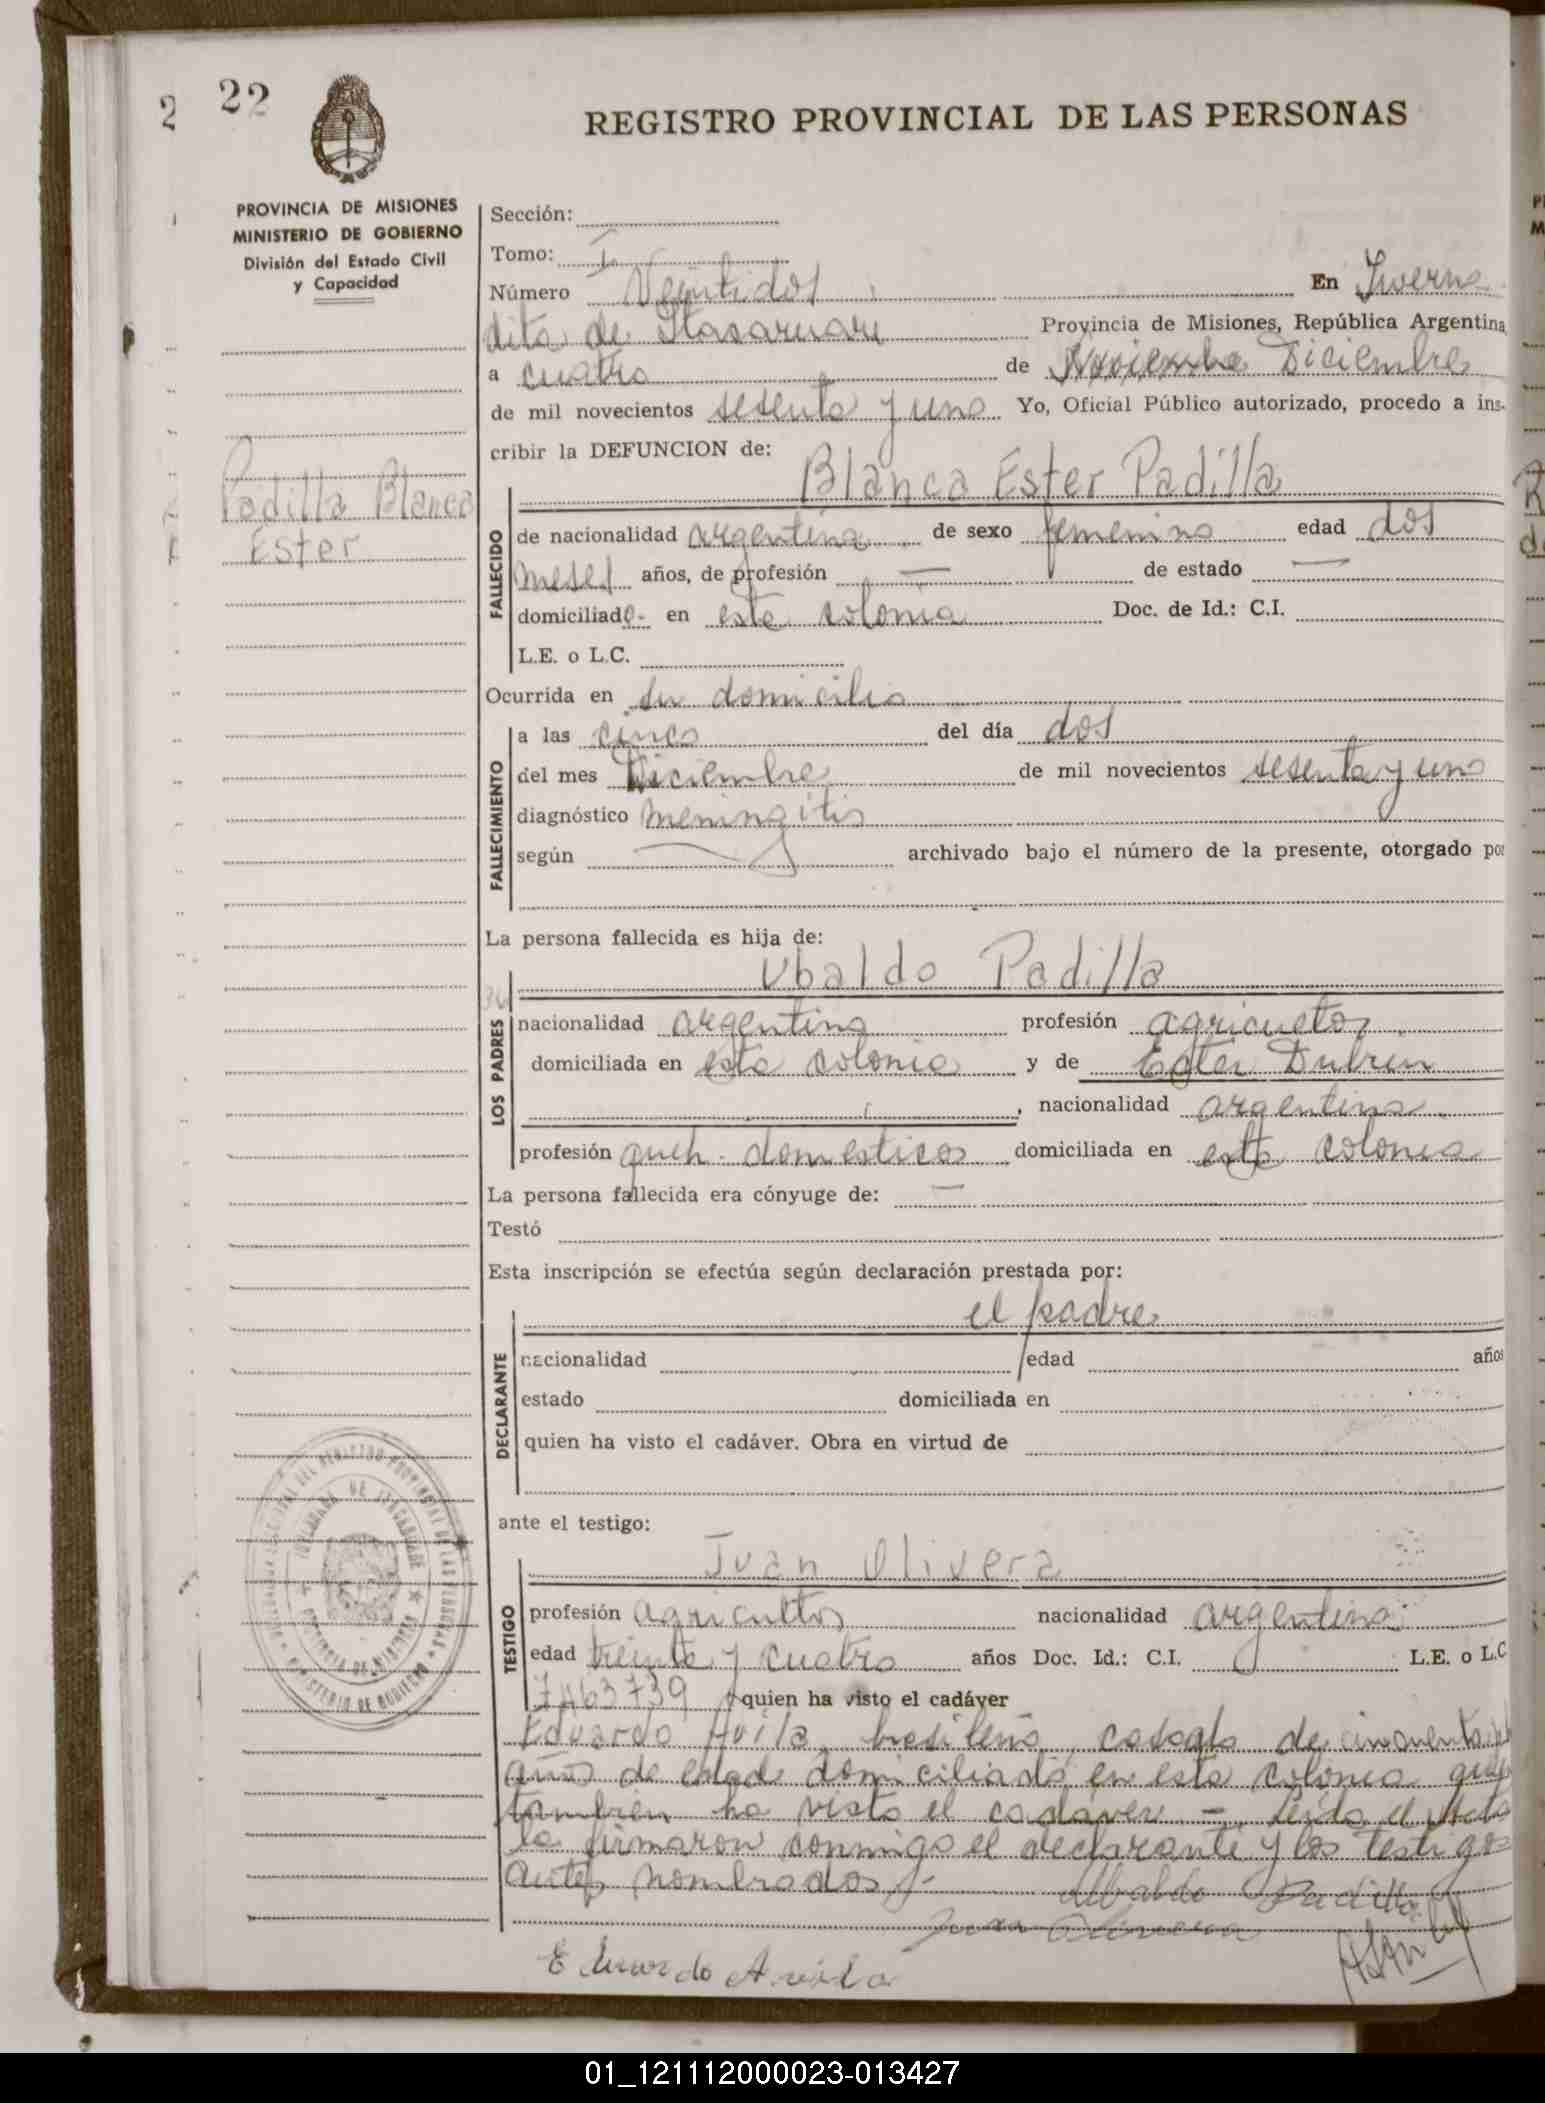 2 22
REGISTRO PROVINCIAL DE LAS PERSONAS
PROVINCIA DE MISIONES
MINISTERIO DE GOBIERNO
División del Estado Civil
y Capacidad
Sección:
Tomo: I
Número Veintidos En Inverna
dita de Itacaruare Provincia de Misiones, República Argentina
a cuatro de Noviembre Diciembre
de mil novecientos sesenta y uno Yo, Oficial Público autorizado, procedo a ins-
cribir la DEFUNCION de:
Blanca Ester Padilla
Padilla Blanca
Ester
FALLECIDO
de nacionalidad argentina de sexo femenino edad dos
meses años, de profesión — de estado —
domiciliado en esta colonia Doc. de Id.: C.I.
L.E. o L.C.
Ocurrida en su domicilio
FALLECIMIENTO
a las cinco del día dos
del mes Diciembre de mil novecientos sesenta y uno
diagnóstico meningitis
según archivado bajo el número de la presente, otorgado por
La persona fallecida es hija de:
Ubaldo Padilla
LOS PADRES
nacionalidad argentina profesión agricultor
domiciliada en esta colonia y de Ester Dubrin
, nacionalidad argentina
profesión queh. domesticos domiciliada en esta colonia
La persona fallecida era cónyuge de: —
Testó
Esta inscripción se efectúa según declaración prestada por:
el padre
DECLARANTE
nacionalidad edad años
estado domiciliada en
quien ha visto el cadáver. Obra en virtud de
ante el testigo:
Juan Olivera
TESTIGO
profesión agricultor nacionalidad argentina
edad treinta y cuatro años Doc. Id.: C.I. L.E. o L.C
7463739 quien ha visto el cadáver
Eduardo Avila, brasileño, casado de cincuenta
años de edad domiciliado en esta colonia quien
tambien ha visto el cadaver - Leida el Acta
la firmaron conmigo el declarante y los testigos
antes nombrados.-
Ubaldo Padilla
Juan Olivera
Eduardo Avila
01_121112000023-013427